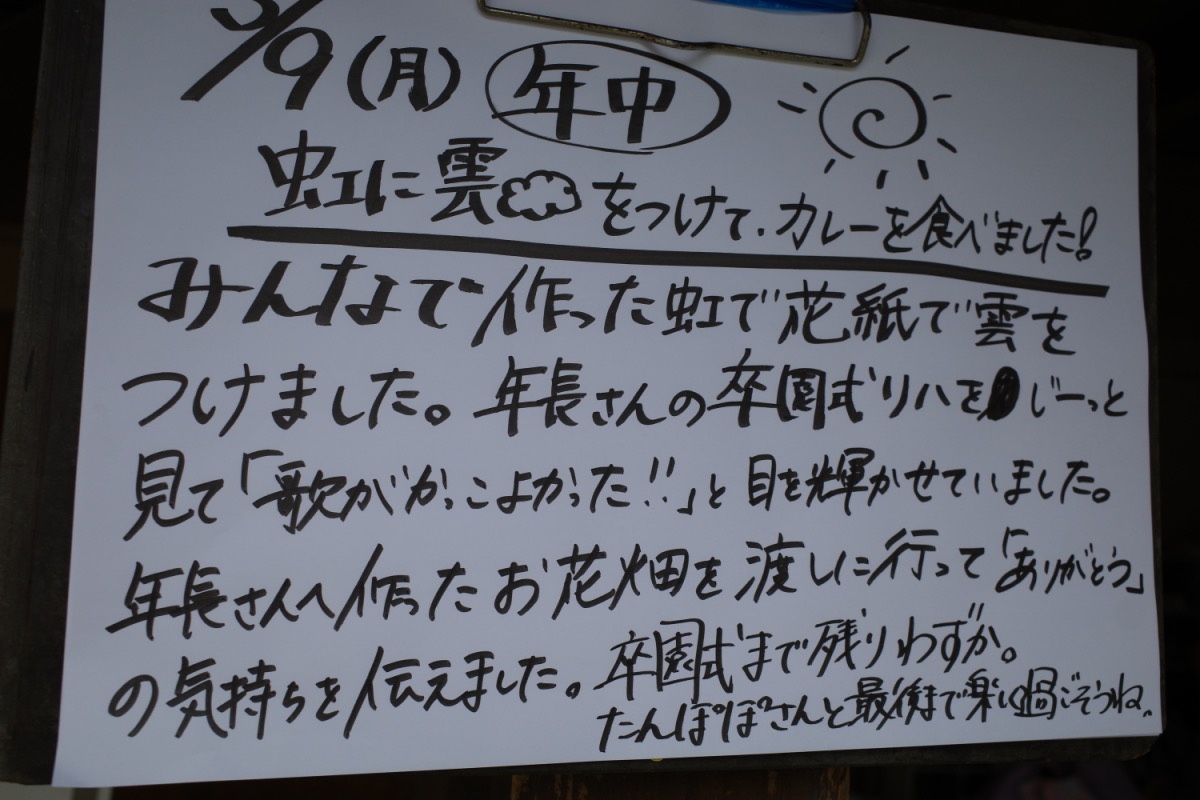 3/9(月) 年中
虹に雲をつけて、カレーを食べました!
みんなで作った虹で花紙で雲を
つけました。年長さんの卒園式リハをじーっと
見て「歌がかっこよかった!!」と目を輝かせていました。
年長さんへ作ったお花畑を渡しに行って「ありがとう」
の気持ちを伝えました。卒園式まで残りわずか。
たんぽぽさんと最後まで楽しく過ごそうね、